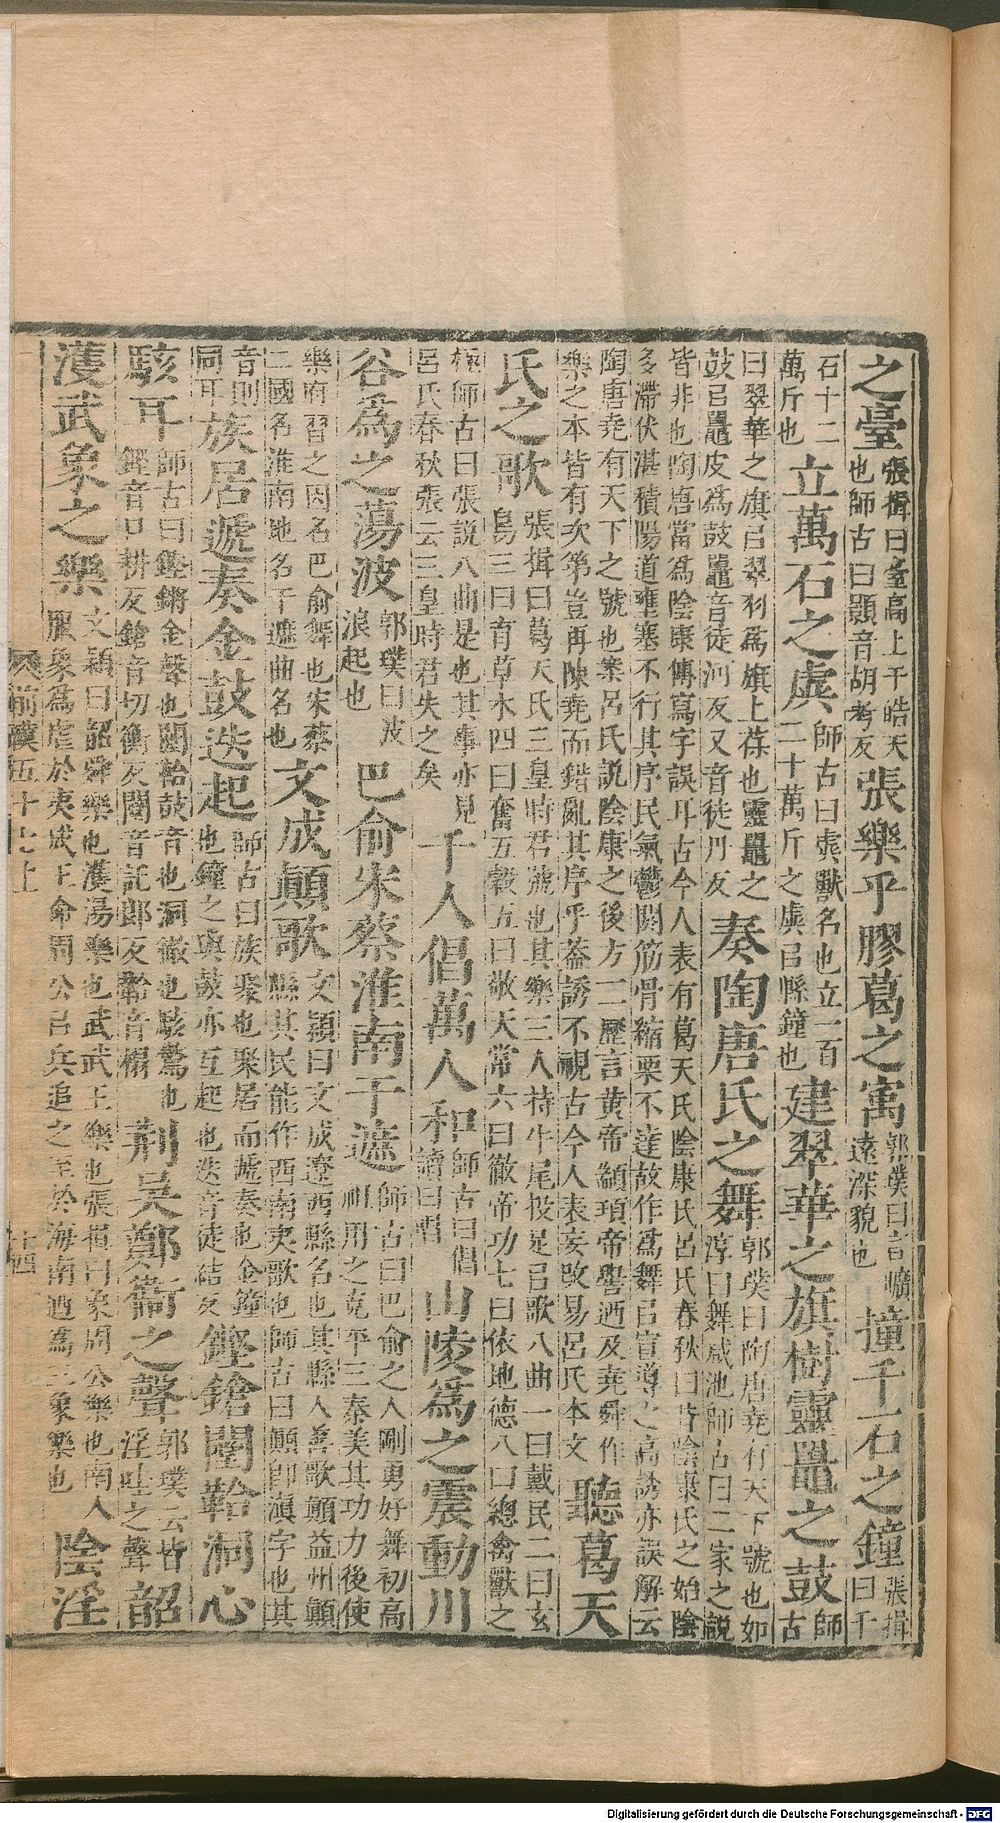 之臺張揖曰臺高上干皓天也師古曰顥音胡考反張樂乎膠葛之㝢郭璞曰言曠遠深貌也撞千石之鐘張揖曰千
石十二萬斤也立萬石之虡師古曰虡獸名也立一百二十萬斤之虡㠯縣鐘也建翠華之旗樹靈鼉之鼓師古
曰翠華之旗㠯翠羽爲旗上葆也靈鼉之鼓㠯鼉皮爲鼓鼉音徒河反又音徒丹反奏陶唐氏之舞郭璞曰陶唐堯有天下號也如淳曰舞咸池師古曰二家之說
皆非也陶唐當爲陰康傳寫字誤耳古今人表有葛天氏陰康氏呂氏春秋曰昔陰康氏之始陰多滯伏湛積陽道壅塞不行其序民氣鬱閼筋骨縮栗不達故作爲舞㠯宣導之高誘亦誤解云
陶唐堯有天下之號也案呂氏說陰康之後方一一歷言黃帝顓頊帝嚳迺及堯舜作樂之本皆有次第豈再陳堯而錯亂其序乎葢誘不視古今人表妄改易呂氏本文聽葛天
氏之歌張揖曰葛天氏三皇時君號也其樂三人持牛尾投足㠯歌八曲一曰戴民二曰玄鳥三曰育草木四曰奮五穀五曰敬天常六曰徹帝功七曰依地德八曰總禽獸之
極師古曰張說八曲是也其事亦見呂氏春秋張云三皇時君失之矣千人倡萬人和師古曰倡讀曰唱山陵爲之震動川
谷爲之蕩波郭璞曰波浪起也巴俞宋蔡淮南干遮師古曰巴俞之人剛勇好舞初高祖用之克平三秦美其功力後使
樂府習之因名巴俞舞也宋蔡二國名淮南地名干遮曲名也文成顛歌文穎曰文成遼西縣名也其縣人善歌顛益州顛縣其民能作西南夷歌也師古曰顛卽滇字也其
音則同耳族居遞奏金鼓迭起師古曰族聚也聚居而遞奏也金鐘也鐘之與鼓亦互起也迭音徒結反鏗鎗闛鞈洞心
駭耳師古曰鏗鏘金聲也闛鞈鼓音也洞徹也駭驚也鏗音口耕反鎗音切衡反闛音託郎反鞈音榻荆吳鄭衞之聲郭璞云皆淫哇之聲韶
濩武象之樂文穎曰韶舜樂也濩湯樂也武武王樂也張揖曰象周公樂也南人服象爲虐於夷成王命周公㠯兵追之至於海南迺爲三象樂也陰淫
前漢五十七上
十四
Digitalisierung gefördert durch die Deutsche Forschungsgemeinschaft - DFG